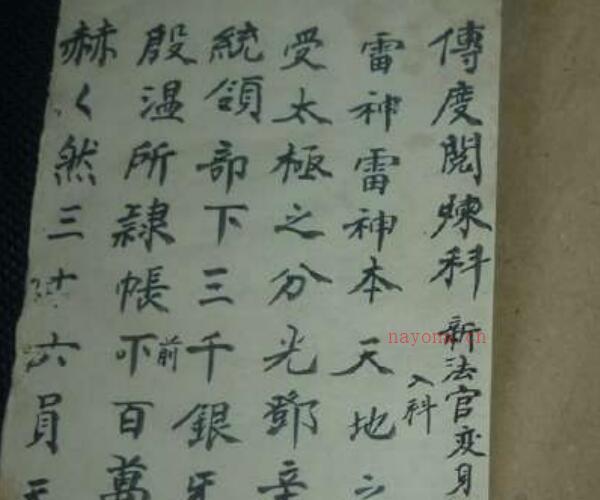 傳度閱煉科 新法官变身
入科
雷神雷神本天地之
受太極之分光鄧辛
統領部下三千銀牙
殷温所隸帳吓百萬
前
赫々然三十六員天
nayona.cn